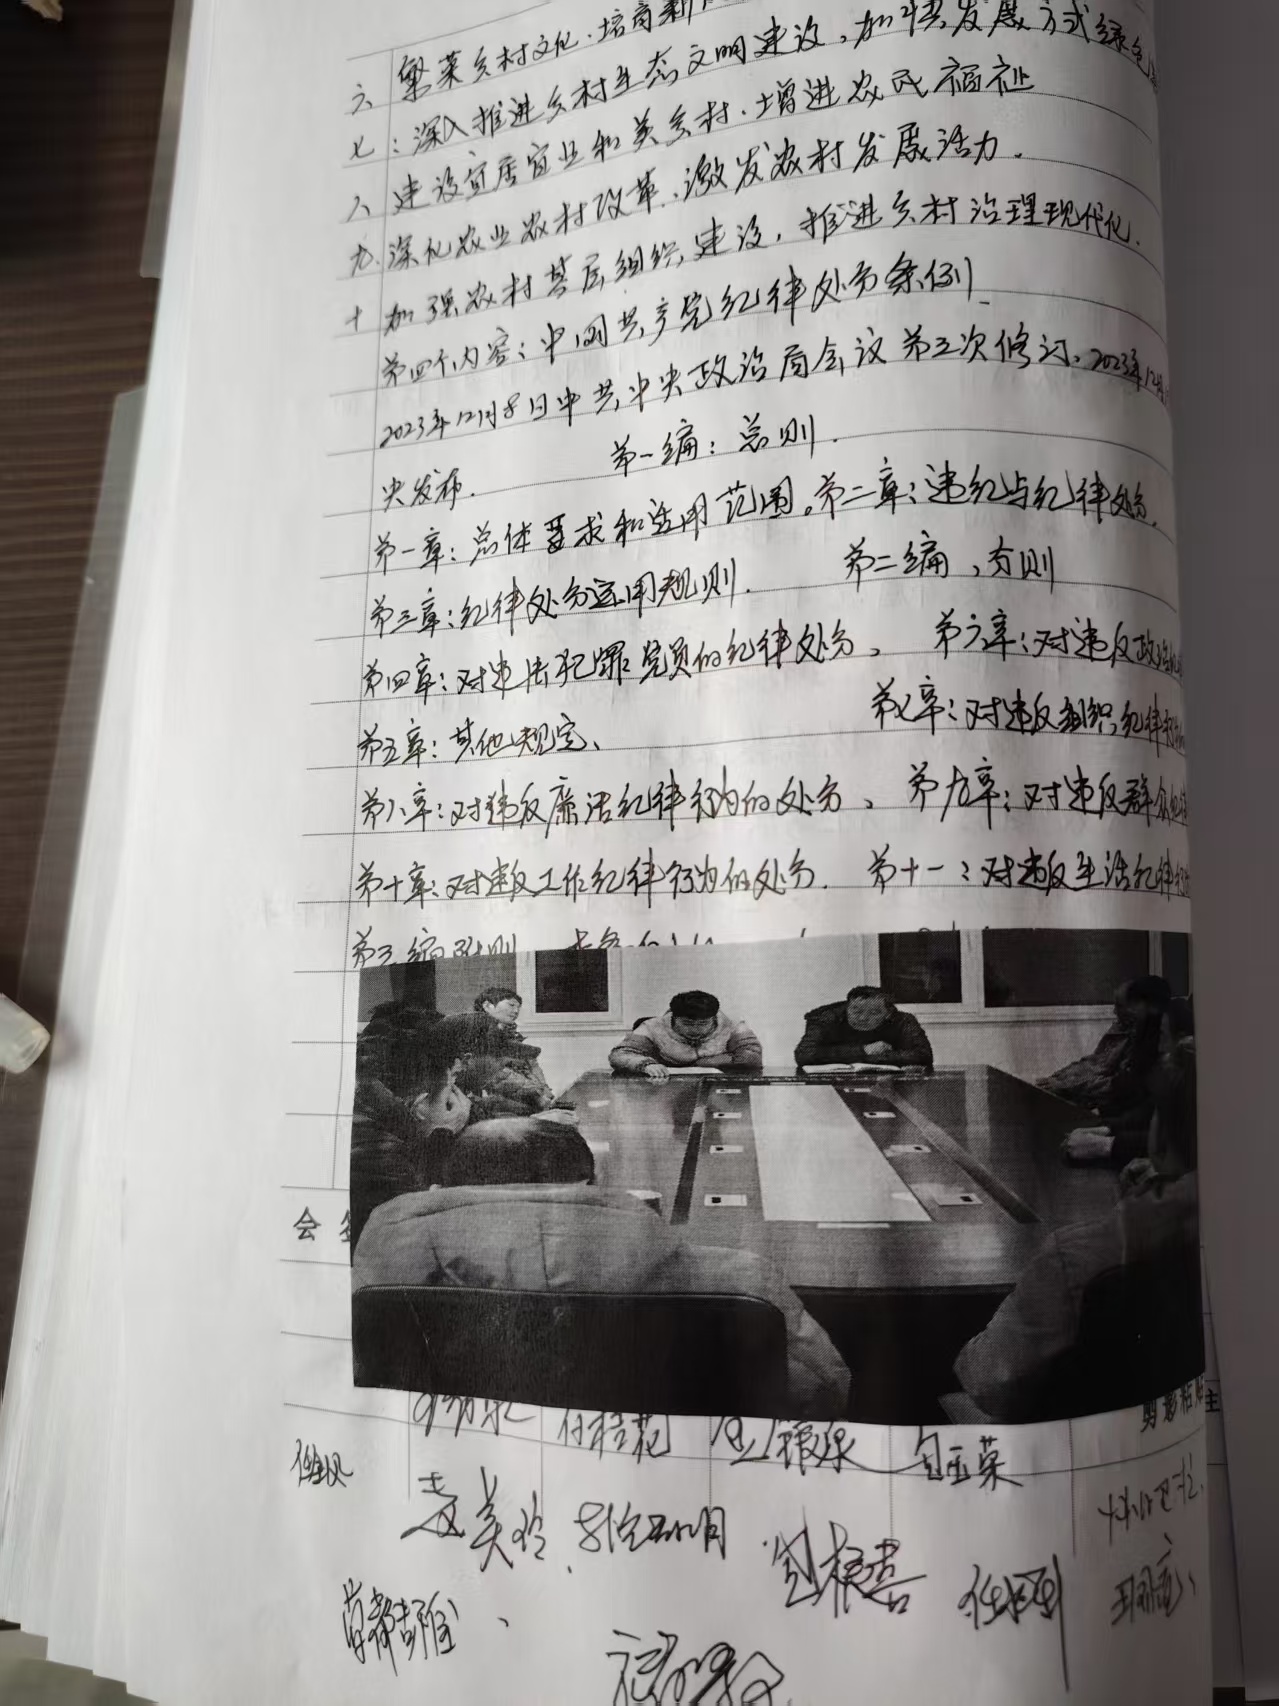 六 繁荣乡村文化.培育新
七:深入推进乡村生态文明建设,加快发展方式绿色
八 建设宜居宜业和美乡村.增进农民福祉
九.深化农业农村改革.激发农村发展活力.
十 加强农村基层组织建设,推进乡村治理现代化.
第四个内容:中国共产党纪律处分条例
2023年12月8日中共中央政治局会议第三次修订.2023年12月
央发布. 第一编:总则.
第一章:总体要求和适用范围。第二章:违纪与纪律处分.
第三章:纪律处分运用规则. 第二编,分则
第四章:对违法犯罪党员的纪律处分、 第六章:对违反政治
第五章:其他规定、 第七章:对违反组织纪律
第八章:对违反廉洁纪律行为的处分、 第九章:对违反群众
第十章:对违反工作纪律行为的处分. 第十一:对违反生活纪律
第三编附则
会
剪影粘贴 主
付桂花 包玉荣
美玲
包根喜